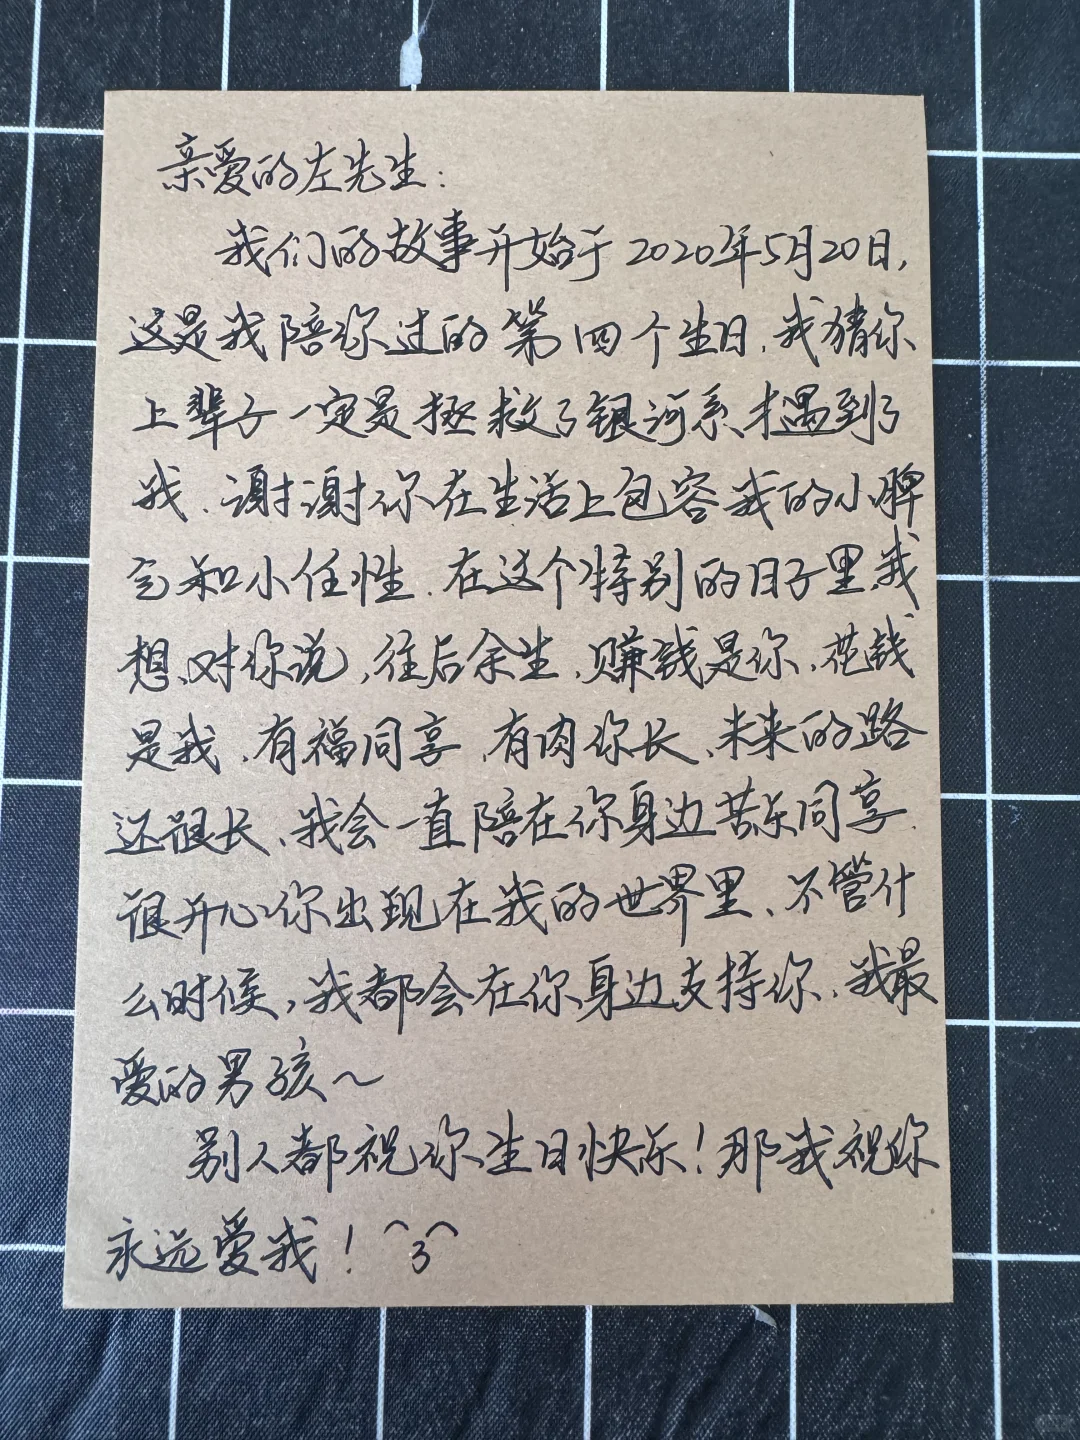 亲爱的左先生：
我们的故事开始于2020年5月20日，
这是我陪你过的第四个生日，我猜你
上辈子一定是拯救了银河系才遇到了
我、谢谢你在生活上包容我的小脾
气和小任性．在这个特别的日子里、我
想、对你说，往后余生，赚钱是你、花钱
是我、有福同享，有肉你长、未来的路
还很长、我会一直陪在你身边苦乐同享．
很开心你出现在我的世界里、不管什
么时候，我都会在你身边支持你、我最
爱的男孩～
别人都祝你生日快乐！那我祝你
永远爱我！⌒3⌒